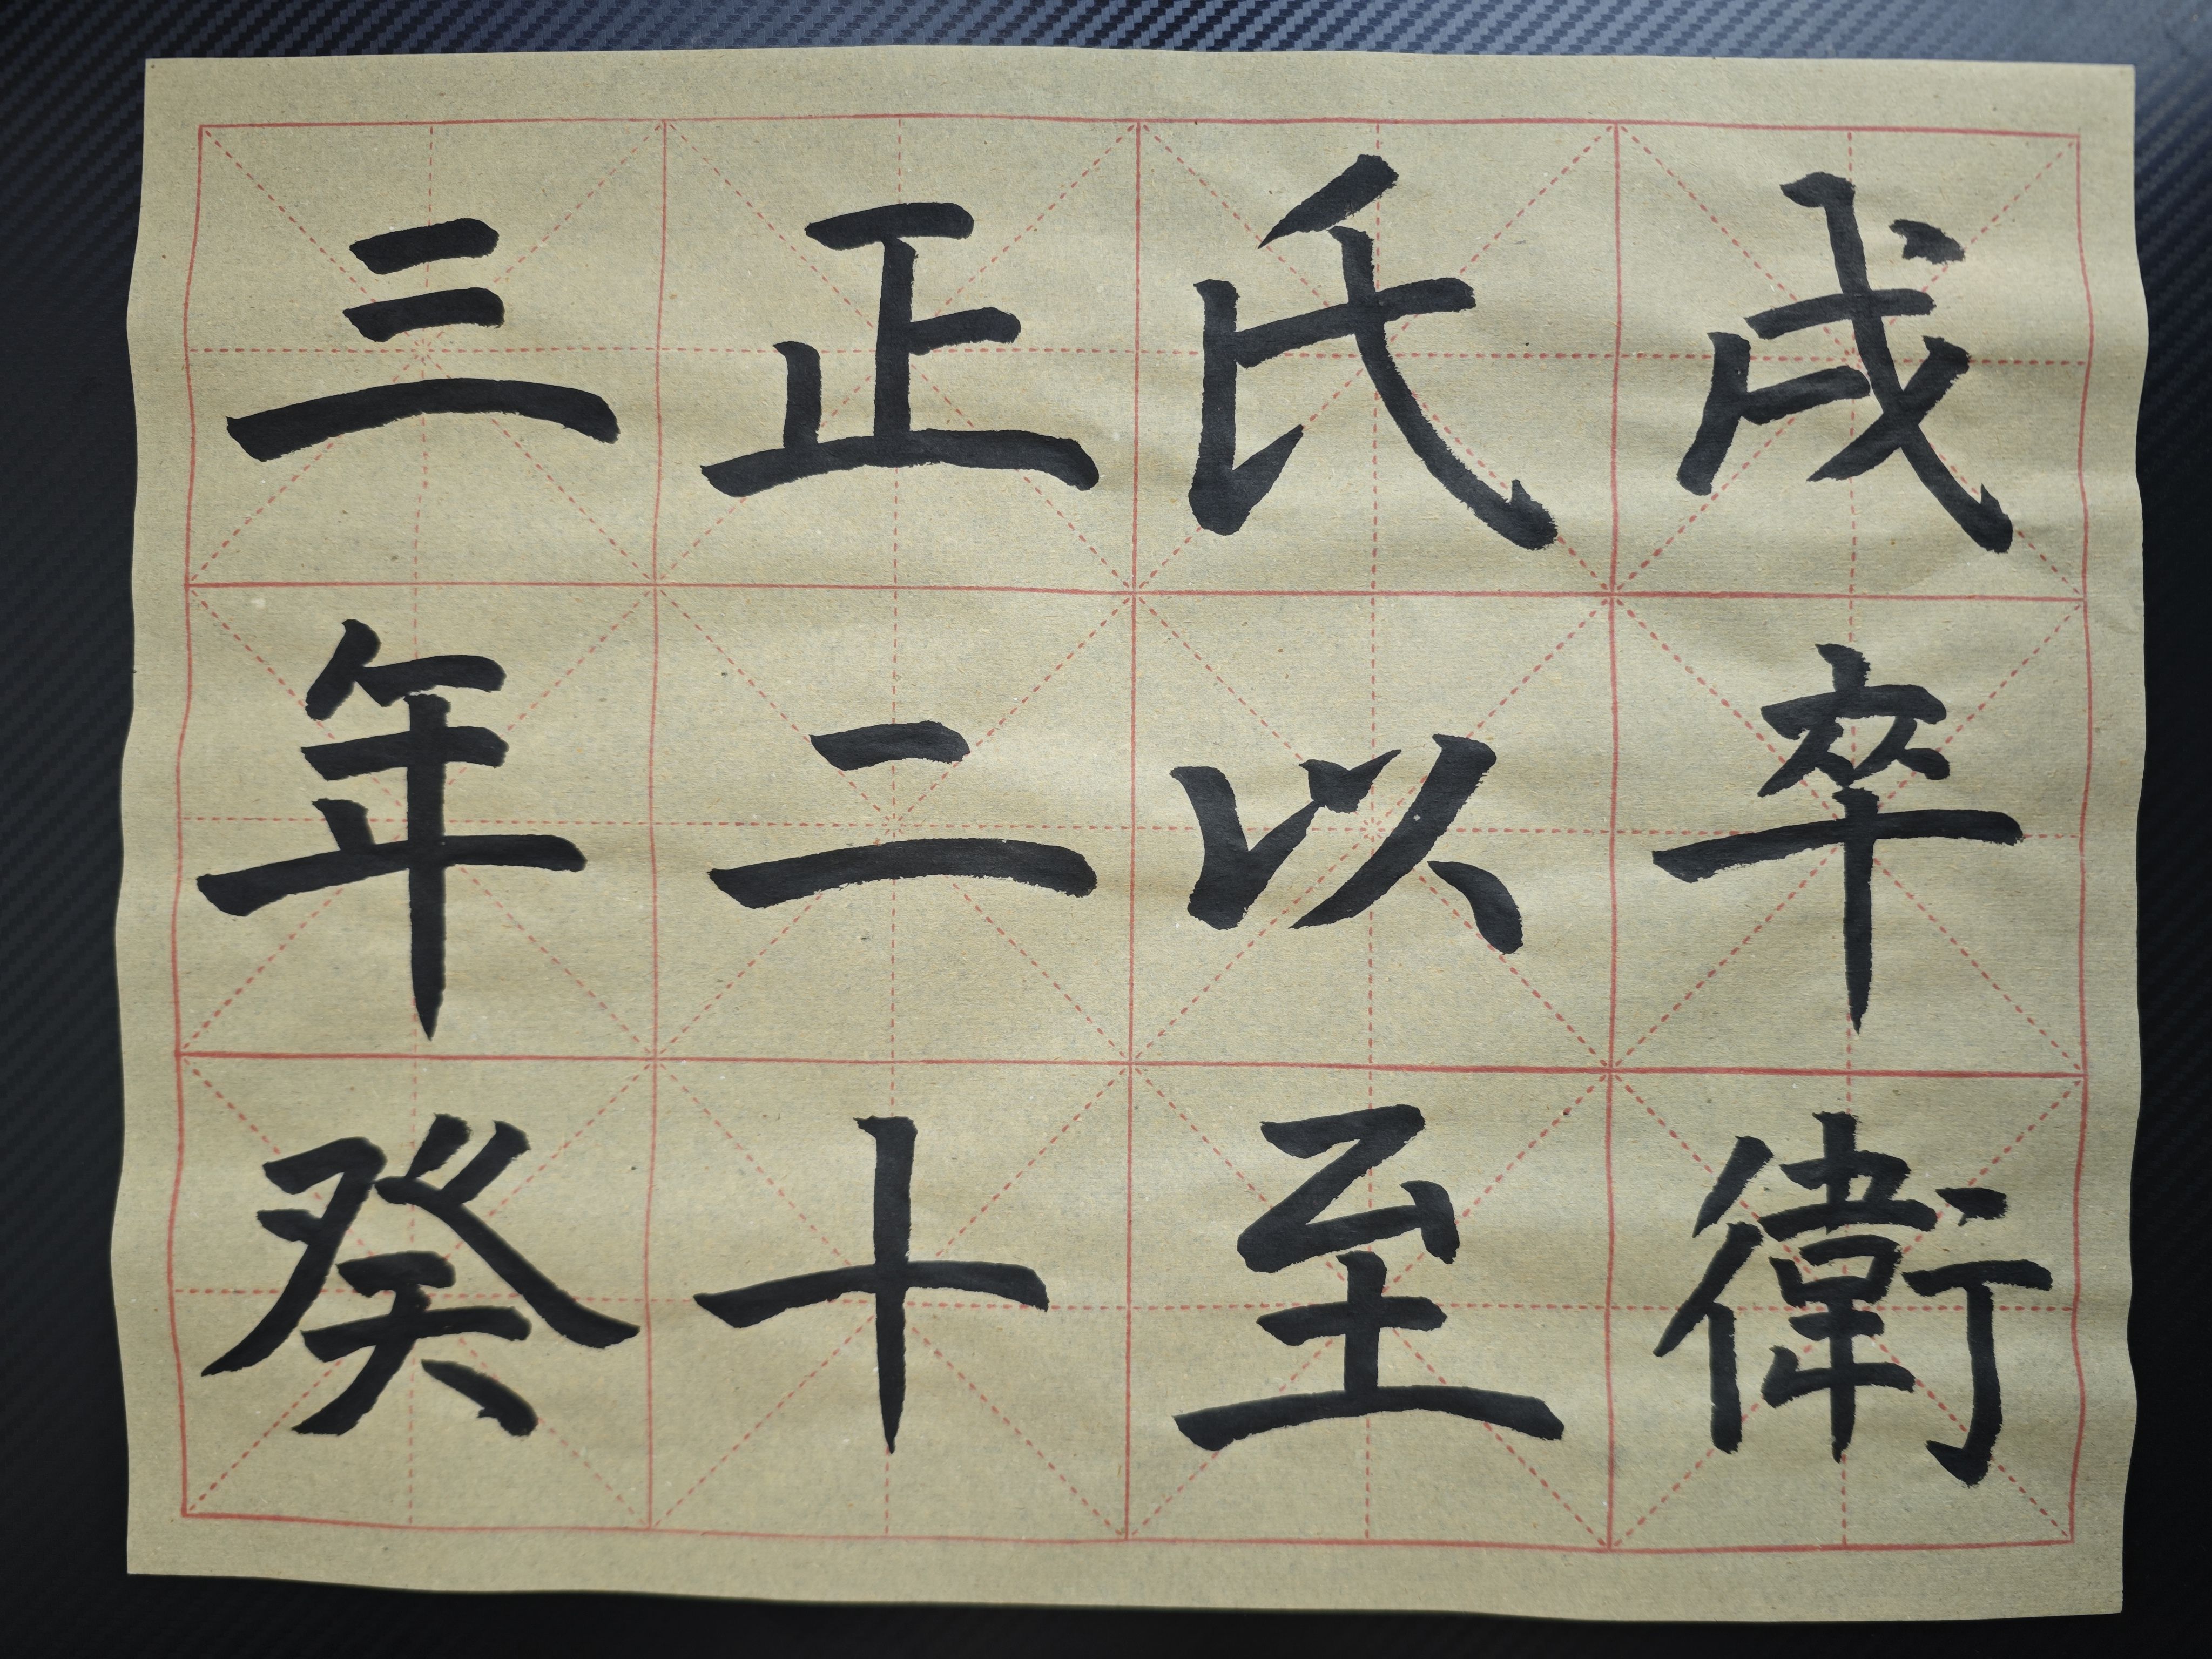 戌卒衛
氏以至
正二十
三年癸